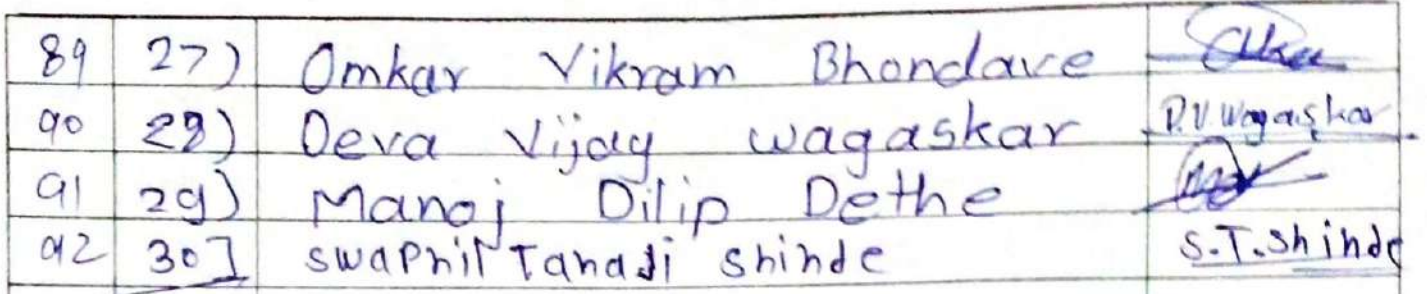 89 27) Omkar Vikram Bhondave
90 28) Deva Vijay wagaskar D.V.Wagaskar
91 29) Manoj Dilip Dethe
92 30] swapnil Tanaji shinde S.T.shinde